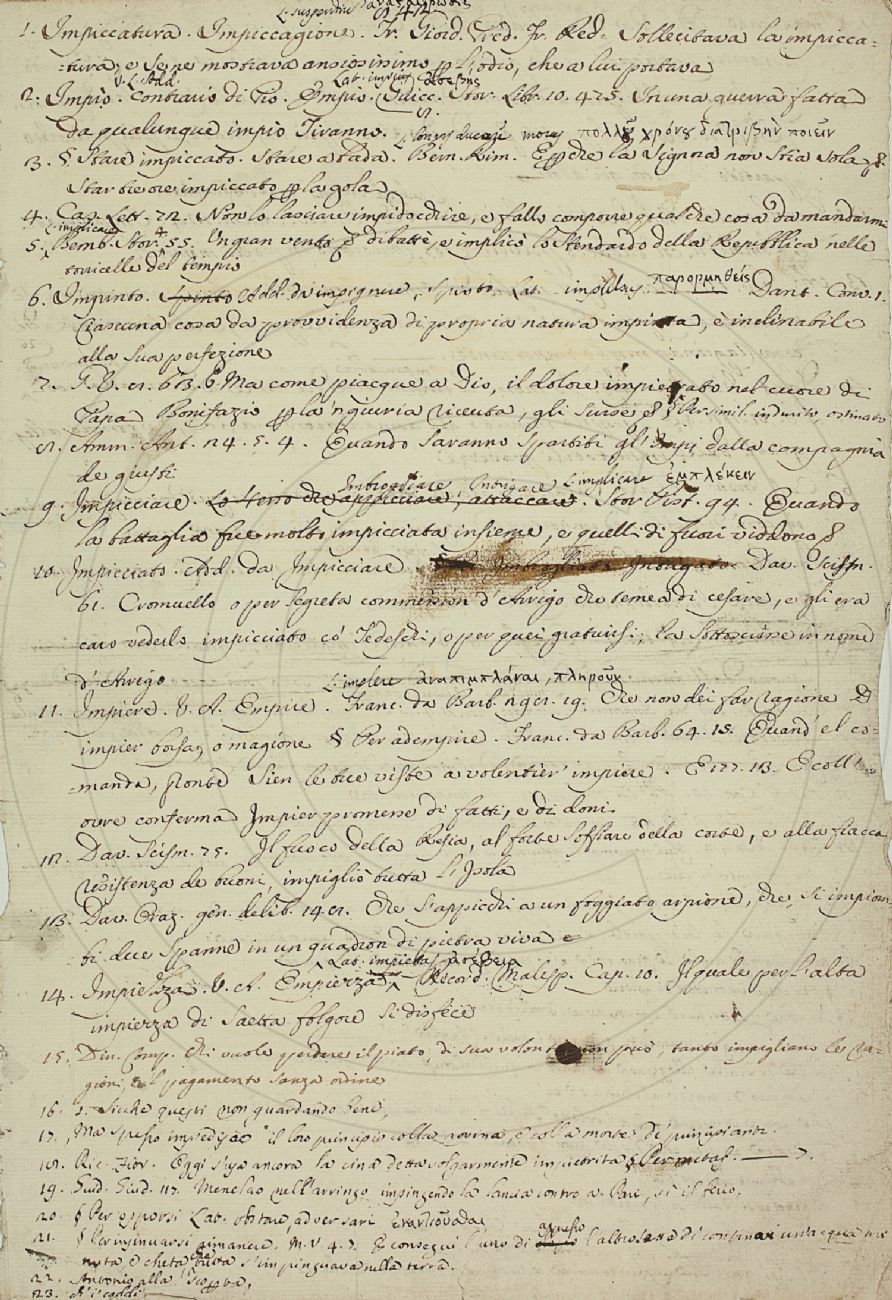 L. suspendium ἀνασταύρωσις
1. Impiccatura. Impiccagione. Fr. Giord. Pred. Fr. Red. Sollecitava la impicca-
-tura, e se ne mostrava ansiosissimo l'odio, che a lui portava
V. L. Add. Lat. impius ἀσεβής
2. Impio. Contrario di Pio. Empio. Guicc. Stor. Libr. 10. 475. In una guerra fatta
da qualunque impio Tiranno. L. longas ducere moras πολλοῦ χρόνου διατριβὴν ποιεῖν
3. § Stare impiccato. Stare a bada. Bern. Rim. E perche la Signora non stia sola
Star tre ore impiccato p la gola
4. Car. Lett. 72. Non lo lasciare impidocchire, e fallo comporre qualche cosa da mandarmi
L. implicare
5. Bemb. Stor. 4. 55. Un gran vento dibattè, e implicò lo stendardo della Repubblica nelle
tonicelle del tempio
6. Impinto. Spinto Add. da impignere, spinto. Lat. impulsus παρορμηθείς Dant. Conv. 1.
Ciascuna cosa da provvidenza di propria natura impinta, è inclinabile
alla sua perfezione
7. F. V. 8. 63. 6 Ma come piacque a Dio, il dolore impietrato nel cuore di
Papa Bonifazio p la 'ngiuria ricevuta, gli surse § Per simil. indurito, ostinato
8. Amm. Ant. 24. 5. 4. Quando saranno spartiti gl'Impj dalla compagnia
de giusti
Imbrogliare, Intrigare L. implicare ἐμπλέκειν
9. Impicciare. Lo stesso che appicciare, attaccare. Stor. Pist. 94. Quando
la battaglia fue molto impicciata insieme, e quelli di fuori viddono
10. Impicciato. Add. da Impicciare. Imbrogliato Intrigato. Dav. Scism.
61. Cromuello o per segreta commession d'Arrigo che temea di Cesare, e gli era
caro vederlo impicciato co' Tedeschi, o per quei gratuirsi, la sottoscrisse in nome
d'Arrigo
L. implere ἀναπιμπλάναι, πληροῦν
11. Impiere. V. A. Empire. Franc. da Barb. 28. 19. Che non dei far ragione D
impier borsa, o magione § Per adempire. Franc. da Barb. 64. 15. Quand' el co-
-manda, pronte Sien le tue viste a volentier impiere. E 177. 13. E coll'
ovre conferma Impier promesse di fatti, e di doni.
12. Dav. Scism. 75. Il fuoco della Resia, al forte soffiare della corte, e alla fiacca
resistenza de buoni, impigliò tutta l'Isola
13. Dav. Oraz. gen. delib. 148. Che s'appicchi a un foggiato arpione, che si impiom-
bi due spanne in un quadron di pietra viva
Lat. impietas ἀσέβεια
14. Impiezza. V. A. Empiezza. Ricord. Malesp. Cap. 10. Il quale per l'alta
impiezza di Saetta folgore si disfece
15. Din. Comp. Chi vuole perdere il piato, di sua volontà non può, tanto impigliano le ra-
gioni, e 'l pagamento sanza ordine
16. Sicche questi non guardando bene,
17. Ma spesso impedisce il loro principio colla rovina, e colla morte di principianti.
18. Ric. Fior. Oggi s'usa ancora la cina detta volgarmente impietrita § Per metaf.
19. Guid. Giud. 117. Menelao nell'arringo, impingendo la lancia contro a Pari, sì il ferio.
20. § Per opporsi Lat. obstare, adversari ἐναντιοῦσθαι
21. § Per insinuarsi rimanere. M. V. 4. 7. E conseguì l'uno di appresso l'altro sette di continui un'acqua mi-
nuta, e cheta tutta s'impinguava nella terra.
22. Antonio alla
23.